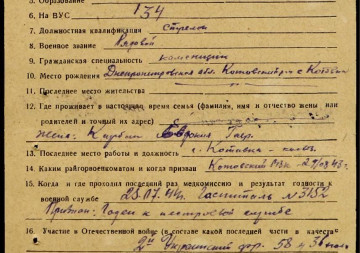 5. Образование
6. На ВУС 134
7. Должностная квалификация Стрелок
8. Военное звание Рядовой
9. Гражданская специальность каменщик
10. Место рождения Днепропетровская обл. Котовский р-н с. Котовка
11. Последнее место жительства
12. Где проживает в настоящее время семья (фамилия, имя и отчество жены или
родителей и точный их адрес)
Жена: Евдокия
13. Последнее место работы и должность с. Котовка -
14. Каким райгорвоенкоматом и когда призван Котовский РВК 43 г.
15. Когда и где проходил последний раз медкомиссию и результат годности к
военной службе 25.07.44г. Госпиталь № 3152
Признан: Годен к нестроевой службе
16. Участие в Отечественной войне (в составе какой последней части в качестве
2й Украинский фр. 58